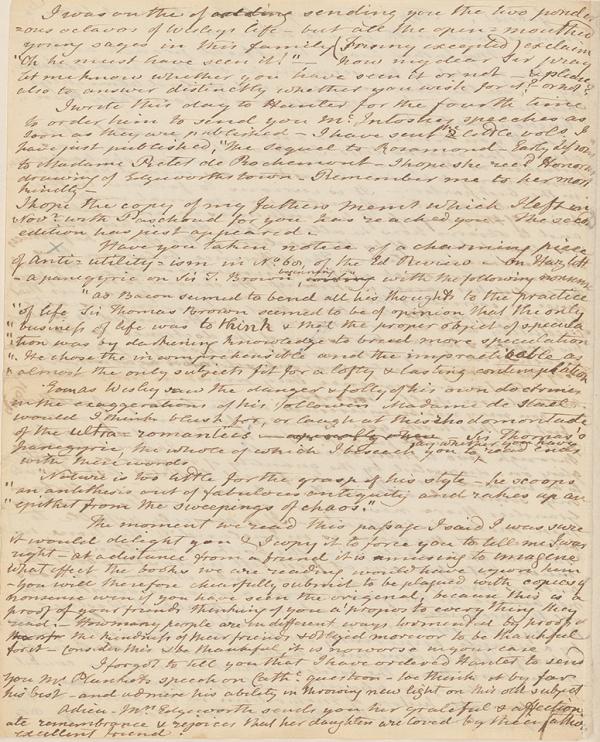 I was on the of adding sending you the two ponder
=ous octavos of Wesleys life - but all the open = mouthed
young sages in this family (Fanny excepted) exclaim
"Oh he must have seen it!" - Now my dear Sir pray
let me know whether you have seen it or not - & please
also to answer distinctly whether you wish for it or not
I wrote this day to Hunter for the fourth time
to order him to send you Mc Intoshes speeches as
soon as they are published - I have sent 2 little vols. I
have just published, "The sequel to Rosamond - Early Lessons
to Madame Pictet de Rochemont - I hope she recd Honoras
drawing of Edgeworthstown - Remember me to her most
kindly -
I hope the copy of my fathers Memrs which I left in
Novr with Paschoud for you has reached you - The second
edition has just appeared -
Have you taken notice of a charming piece
of Anti-utility-ism in No 60, of the Ed Review - on Hazlitt
- a panegyric on Sir T. Brown beginning ending with the following nonsense
"as Bacon seemed to bend all his thoughts to the practice
"of life Sir Thomas Brown seemed to be of opinion that the only
"business of life was to think & that the proper object of specula
"tion was by darkening knowledge to breed more speculation
"He chose the incomprehensible and the impracticable as
"almost the only subjects fit for a lofty & lasting contemplation
Even as Wesley saw the danger & folly of his own doctrines
in the exaggerations of his followers Madame de Stael
would I think blush for, or laugh at this rhodomontade
of the ultra-romantics Sir Thomas's
panegyric, the whole of which I beseech you to read ends
with these words
"Nature is too little for the grasp of his style - he scoops
"an antithesis out of fabulous antiquity and rakes up an
"epithet from the sweepings of chaos."
The moment we read this passage I said I was sure
it would delight you & I copy it to force you to tell me I was
right - at a distance from a friend it is amusing to imagine
what effect the books we are reading would have upon him
- you will therefore chearfully submit to be plagued with copies of
nonsense even if you have seen the original, because this is a
proof of your friends thinking of you a'propos to every thing they
read. - How many people are in different ways tormented by proofs of
the kindness of their friends & obliged moreover to be thankful
for it - Consider this & be thankful it is no worse in your case
I forgot to tell you that I have ordered Hunter to send
you Mr Plunkets speech on Cathc question - we think it by far
his best - and admire his ability in throwing new light on this old subject
Adieu - Mrs Edgeworth sends you her grateful & affection
ate remembrance & rejoices that her daughters are loved by their fathers
excellent friend.